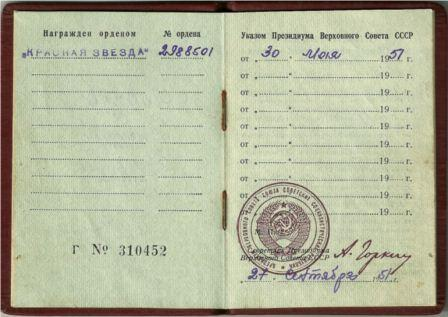 Награжден орденом № ордена
„КРАСНАЯ ЗВЕЗДА“ 2988501
Г № 310452
Указом Президиума Верховного Совета СССР
от „ 30 “ 1951 г.
от „ “ 19 г.
от „ “ 19 г.
от „ “ 19 г.
от „ “ 19 г.
от „ “ 19 г.
от „ “ 19 г.
от „ “ 19 г.
от „ “ 19 г.
от „ “ 19 г.
Секретарь Президиума
Верховного Совета СССР А. Горкин
27 сентября 51 г.